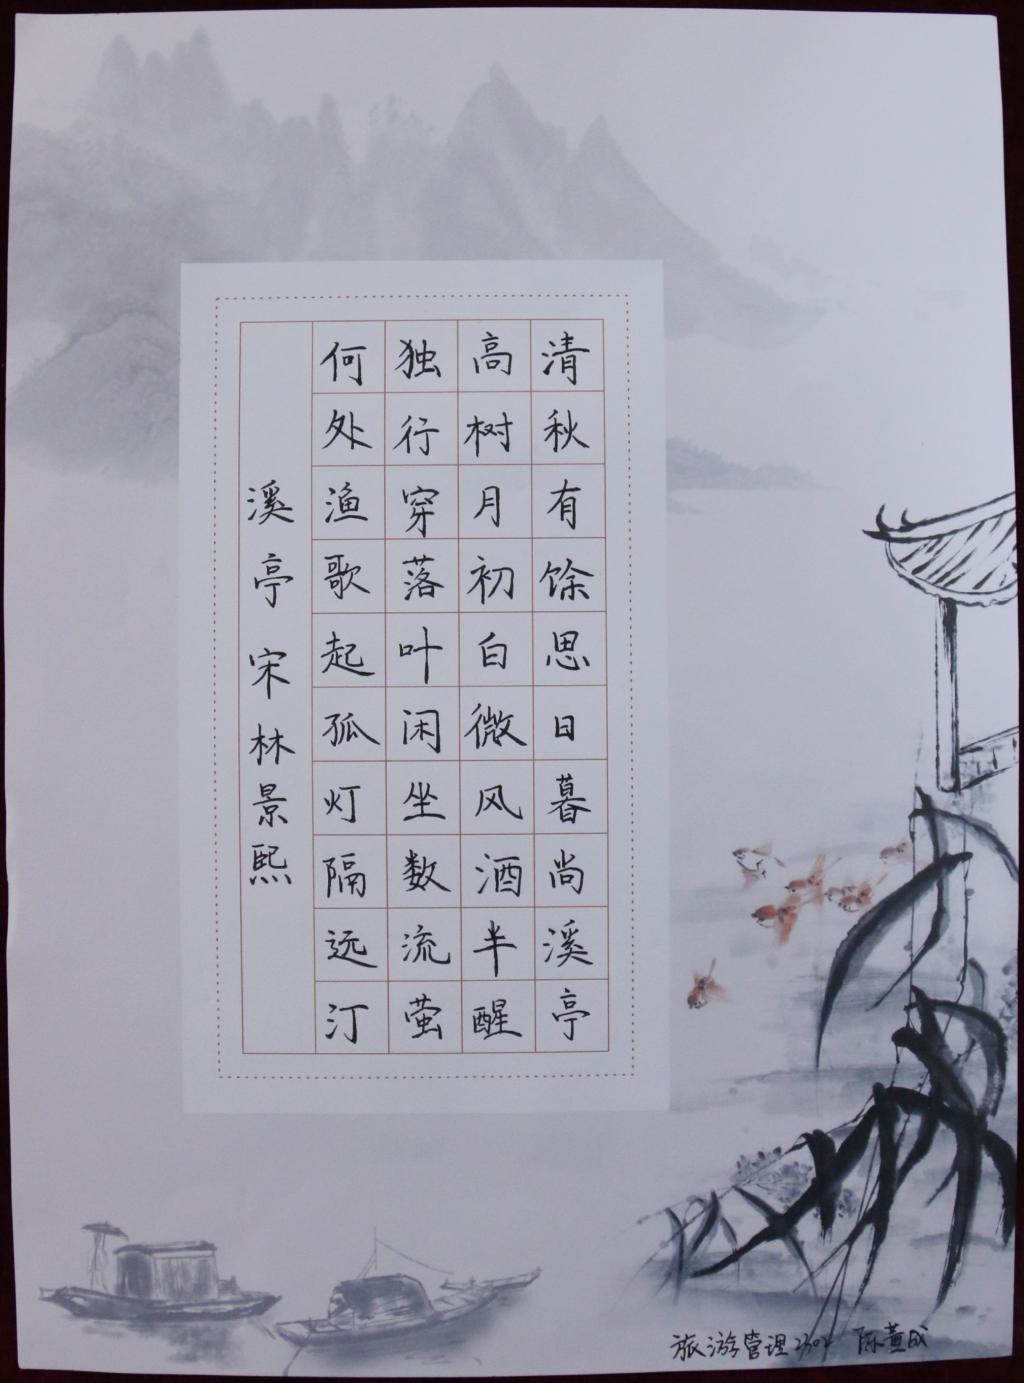 清秋有馀思日暮尚溪亭
高树月初白微风酒半醒
独行穿落叶闲坐数流萤
何处渔歌起孤灯隔远汀
溪亭 宋 林景熙
旅游管理2302 陈黄成